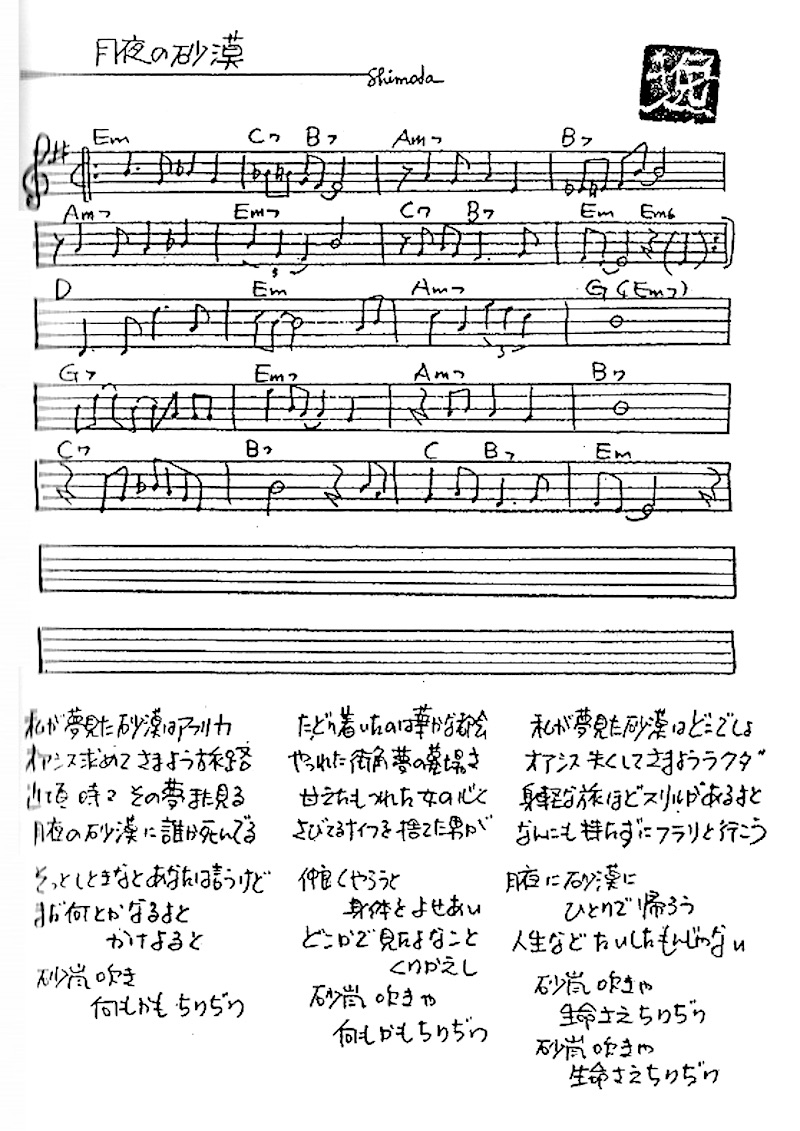 月夜の砂漠
Shimoda
Em C7 B7 Am7 B7
Am7 Em7 C7 B7 Em Em6
3
D Em Am7 G (Em7)
3
G7 Em7 Am7 B7
C7 B7 C B7 Em
私が夢見た砂漠はアフリカ
オアシス求めてさまよう旅路
近頃 時々 その夢また見る
月夜の砂漠に誰か死んでる
そっとしときなとあなたは言うけど
まだ何とかなるよと
かけよると
砂嵐吹き
何もかもちりぢり
たどり着いたのは華かな都会
やつれた街角夢の墓場さ
甘えたもつれた女の心
さびてるナイフを捨てた男が
仲良くやろうと
身体をよせあい
どこかで見たよなこと
くりかえし
砂嵐吹きゃ
何もかもちりぢり
私が夢見た砂漠はどこでしょ
オアシス失くしてさまようラクダ
身軽な旅ほどスリルがあるよと
なんにも持たずにフラリと行こう
月夜に砂漠に
ひとりで帰ろう
人生などたいしたもんじゃない
砂嵐吹きゃ
生命さえちりぢり
砂嵐吹きゃ
生命さえちりぢり